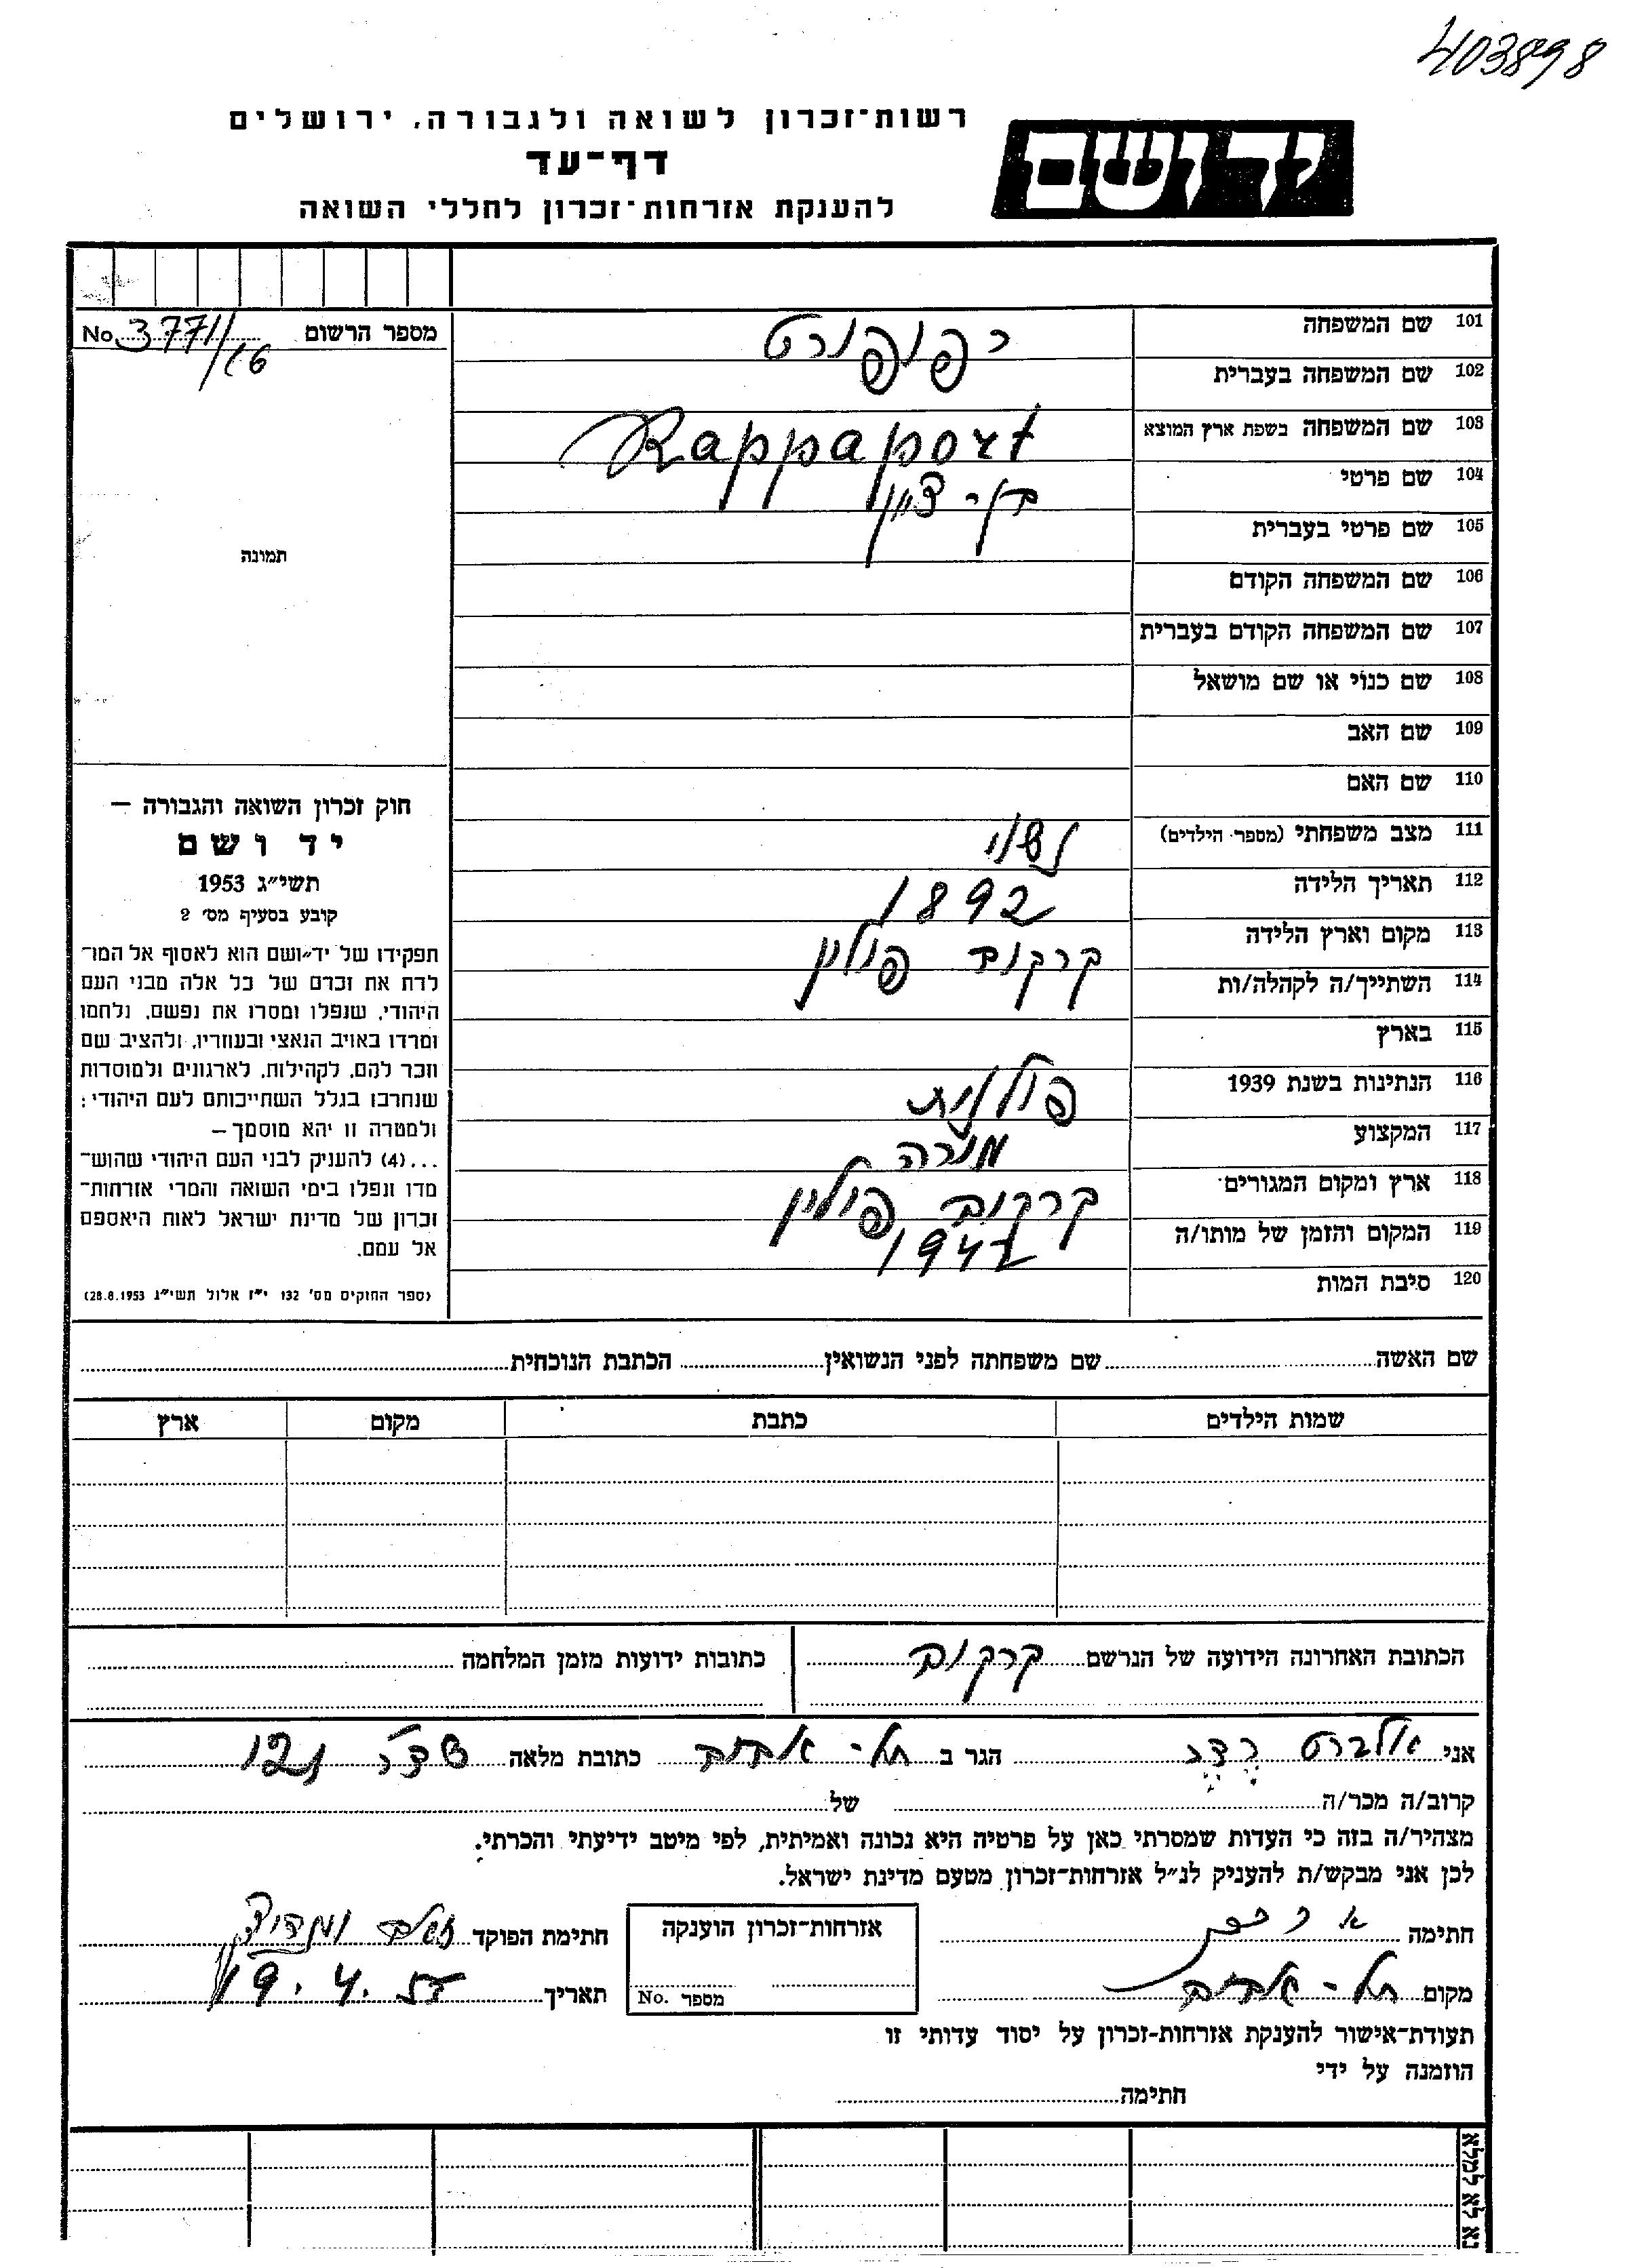 403898
רשות-זכרון לשואה ולגבורה, ירושלים
דף-עד
להענקת אזרחות-זכרון לחללי השואה
ידושם
101 שם המשפחה רפופורט
102 שם המשפחה בעברית
103 שם המשפחה בשפת ארץ המוצא Rappaport
104 שם פרטי בן-ציון
105 שם פרטי בעברית
106 שם המשפחה הקודם
107 שם המשפחה הקודם בעברית
108 שם כנוי או שם מושאל
109 שם האב
110 שם האם
111 מצב משפחתי (מספר הילדים) נשוי
112 תאריך הלידה 1892
113 מקום וארץ הלידה קרקוב פולין
114 השתייך/ה לקהלה/ות
115 בארץ
116 הנתינות בשנת 1939 פולנית
117 המקצוע מורה
118 ארץ ומקום המגורים קרקוב פולין
119 המקום והזמן של מותו/ה 1942
120 סיבת המות
מספר הרשום No. 3771/16
תמונה
חוק זכרון השואה והגבורה —
יד ושם
תשי״ג 1953
קובע בסעיף מס' 2
תפקידו של יד-ושם הוא לאסוף אל המו-
לדת את זכרם של כל אלה מבני העם
היהודי, שנפלו ומסרו את נפשם, נלחמו
ומרדו באויב הנאצי ובעוזריו, ולהציב שם
וזכר להם, לקהילות, לארגונים ולמוסדות
שנחרבו בגלל השתייכותם לעם היהודי;
ולמטרה זו יהא מוסמך —
...(4) להעניק לבני העם היהודי שהוש-
מדו ונפלו בימי השואה והמרי אזרחות-
זכרון של מדינת ישראל לאות היאספם
אל עמם.
(ספר החוקים מס' 132 י״ז אלול תשי״ג 28.8.1953)
שם האשה שם משפחתה לפני הנשואין הכתבת הנוכחית
שמות הילדים כתבת מקום ארץ
הכתובת האחרונה הידועה של הנרשם קרקוב כתובות ידועות מזמן המלחמה
אני אלברט הגר ב תל-אביב כתובת מלאה
קרוב/ה מכר/ה של
מצהיר/ה בזה כי העדות שמסרתי כאן על פרטיה היא נכונה ואמיתית, לפי מיטב ידיעתי והכרתי.
לכן אני מבקש/ת להעניק לנ״ל אזרחות-זכרון מטעם מדינת ישראל.
חתימה אזרחות-זכרון הוענקה חתימת הפוקד
מקום תל-אביב מספר No. תאריך 19.4.55
תעודת-אישור להענקת אזרחות-זכרון על יסוד עדותי זו
הוזמנה על ידי
חתימה
נא לא למלא